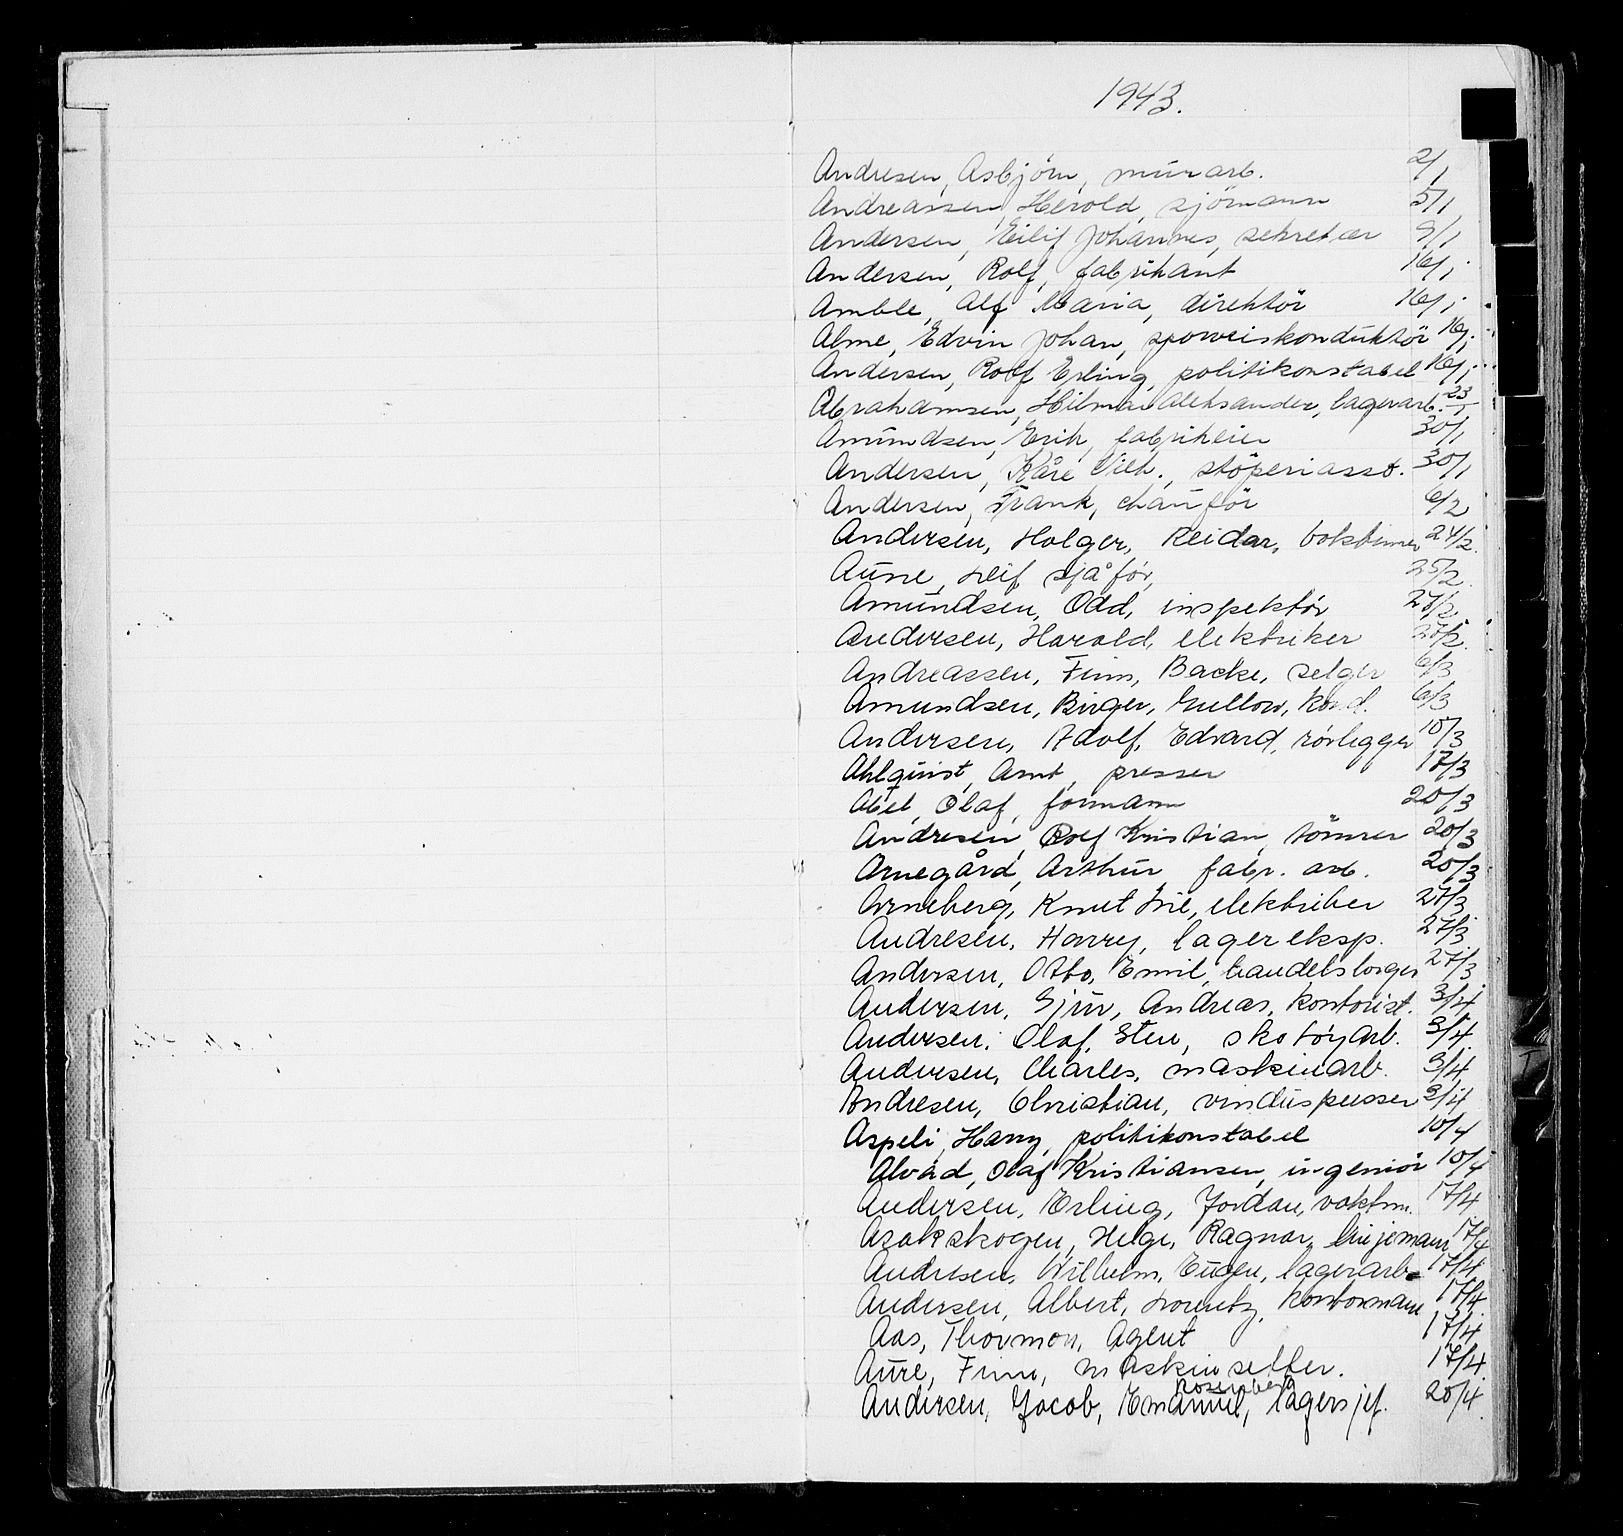 1943.
Andresen, Asbjörn, murarb. 2/1
Andreassen, Herold, sjömann 5/1
Andersen, Eilif Johannes, sekretær 9/1
Andersen, Rolf, fabrikant 16/1
Amble, Alf Maria, direktör 16/1
Alme, Edvin Johan, sporveiskonduktör 16/1
Andersen, Rolf Erling, politikonstabel 16/1
Abrahamsen, Hilmar Aleksander, lagerarb. 23/1
Amundsen, Erik, fabrikeier 30/1
Andersen, Kåre Vilh., stöperiasst. 30/1
Andersen, Frank, chauför 6/2
Andersen, Holger, Reidar, 24/2
Aune, Leif sjåfør, 25/2
Amundsen, Odd, inspektør 27/2
Andersen, Harald, elektriker 27/2
Andreassen, Finn, Backe, selger 6/3
Amundsen, Birger, kond. 6/3
Andersen, Adolf, Edvard, rørlegger 10/3
Ahlquist, Arnt, presser 17/3
Abel, Olaf, formann 20/3
Andresen, Rolf Kristian, tömrer 20/3
Arnegård, Arthur, fabr. arb. 20/3
Arneberg, Knut Lie, elektriker 27/3
Andresen, Harry, lagereksp. 27/3
Andersen, Otto, Emil, handelsborger 27/3
Andersen, Sjur, Andreas, kontorist. 3/4
Andersen, Olaf, Sten, skotøyarb. 3/4
Andersen, Charles, maskinarb. 3/4
Andresen, Christian, vinduspusser 3/4
Aspeli, Harry, politikonstabel 10/4
Alvad, Olaf Kristiansen, ingeniör 10/4
Andersen, Erling, Jordan, vaktm. 17/4
Asakskogen, Helge, Ragnar, linjemann 17/4
Andresen, Wilhelm, Eugen, lagerarb. 17/4
Andersen, Albert, Lorentz, kontormann 17/4
Aas, Thormon, Agent 17/4
Aure, Finn, maskinsetter. 17/4
Rosenberg
Andersen, Jacob, Emanuel, lagersjef. 20/4